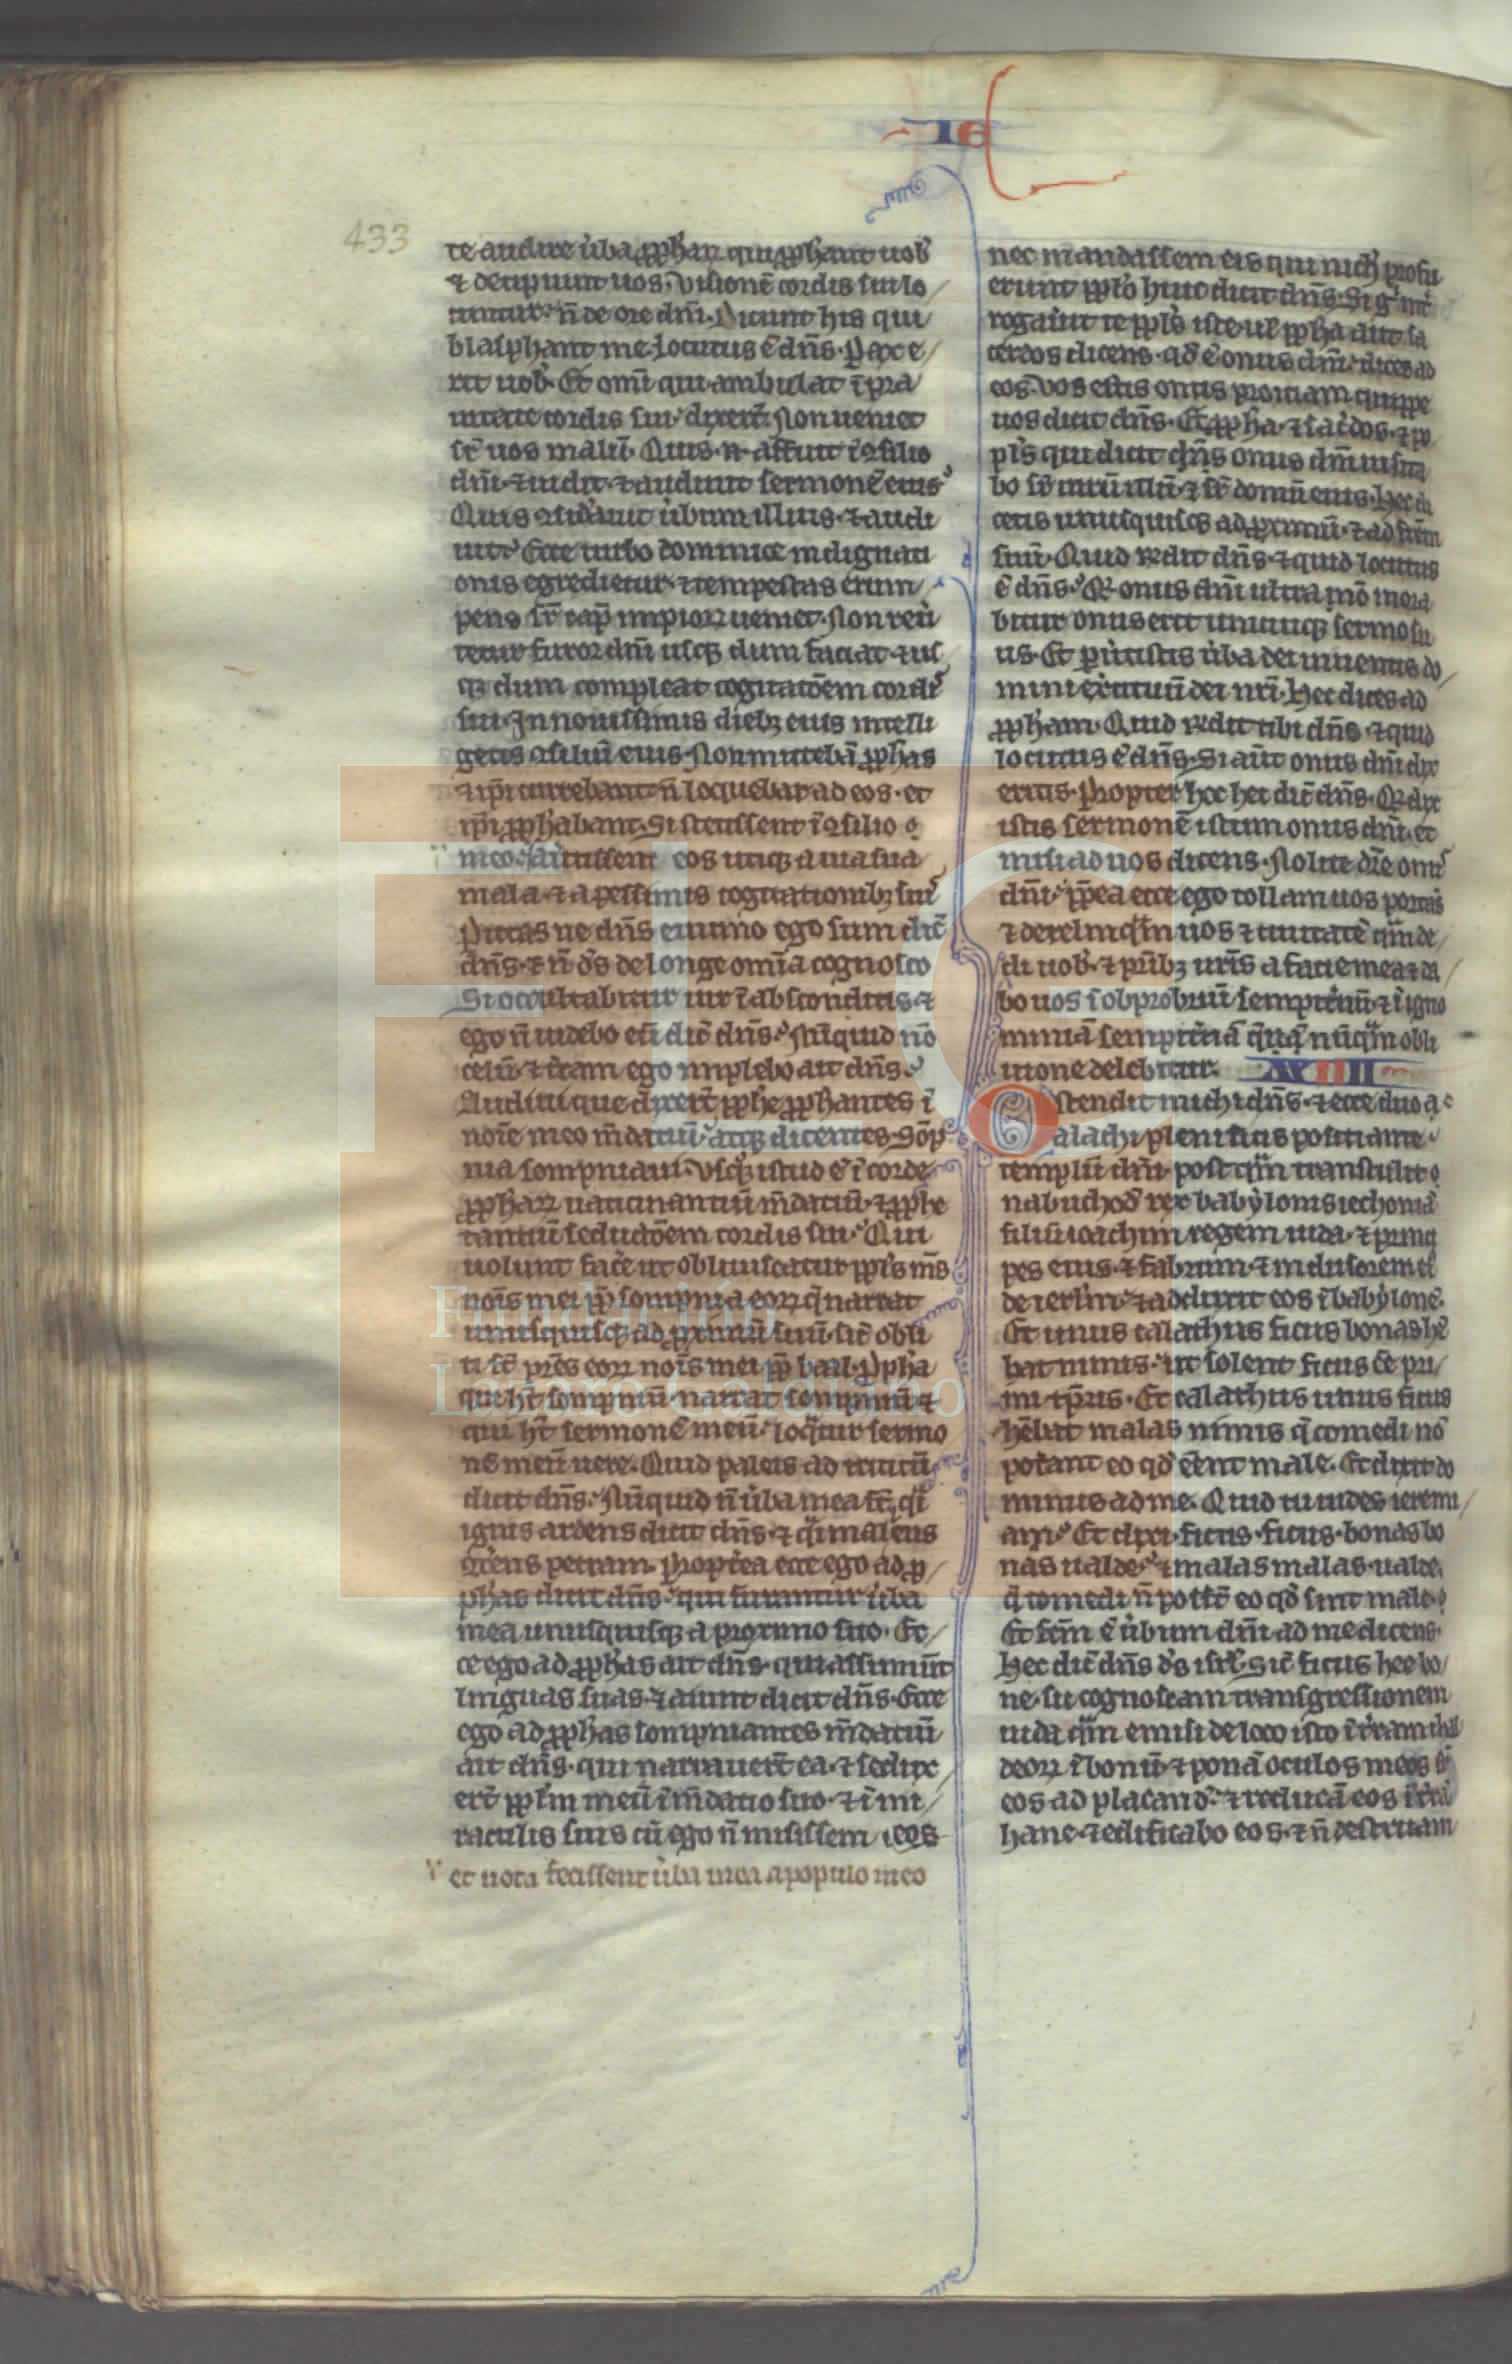 IE
433
te audire ũba ꝓph̃aꝝ qui ꝓph̃ant uob̃
⁊ decipiunt uos. Visionẽ cordis sui lo
cuntur. ñ de ore dñi. Dicunt his qui
blasph̃ant me. locutus ẽ dñs. Pax e
rit uob̃. Et om̃i qui ambulat ĩ pra
uitate cordis sui. dixerũt. Non ueniet
sr̃ uos malũ. Quis. n. affuit ĩ ꝯsilio
dñi. ⁊ uidit. ⁊ audiuit sermonẽ eius
Quis ꝯsid̃auit ũbum illius. ⁊ audi
uit. Ecce turbo dominice indignati
onis egredietur. ⁊ tempestas erum
pens sr̃ cap̃ impioꝝ ueniet. Non reũ
tetur furor dñi usqꝫ dum faciat ⁊ us
qꝫ dum compleat cogitatõem cordis
sui. In nouissimis diebꝫ eius intelli
getis ꝯsiliũ eius. Non mittebã ꝓph̃as
⁊ ip̃i currebant. ñ loquebar ad eos. et
ip̃i ꝓph̃abant. Si stetissent ĩ ꝯsilio
meo. auertissem eos utiqꝫ a uia sua
mala. ⁊ a pessimis cogitationibꝫ suis
Putas ne dñs e uicino ego sum dic̃
dñs. ⁊ ñ d̃s de longe om̃ia cognosco
Si occultabitur uir ĩ absconditis. ⁊
ego ñ uidebo eũ dic̃ dñs. Nũquid nõ
celũ. ⁊ t̃ram ego implebo ait dñs.
Audiui que dixerũt ꝓph̃e ꝓph̃antes ĩ
noĩe meo m̃daciũ. atqꝫ dicentes. Sõp
nia sompniaui. Vsqꝫ quo istud ẽ ĩ corde
ꝓph̃aꝝ uaticinantiũ m̃daciũ. ⁊ ꝓph̃e
tantiũ seductõem cordis sui. Qui
uolunt fac̃e ut obliuiscatur ppl̃s m̃s
nois̃ mei ꝓp̃ sompnia eoꝝ q̃ narrat
unusquisqꝫ ad ꝓximũ suũ. sic̃ obli
ti st̃ pr̃es eoꝝ nois̃ mei ꝓp̃ baal. Ꝓph̃a
qui ht̃ sompniũ. narrat sompniũ. ⁊
qui ht̃ sermonẽ meũ. loq̃tur sermo
nẽ meũ uere. Quid paleis ad triticũ
dicit dñs. Nũquid ñ ũba mea st̃ q̃i
ignis ardens dicit dñs. ⁊ q̃i malleus
ꝯt̃ens petram. Propt̃ea ecce ego ad ꝓ
ph̃as dicit dñs. qui furantur ũba
mea unusquisqꝫ a proximo suo. Ec
ce ego ad ꝓph̃as ait dñs. qui assumũt
linguas suas. ⁊ aiunt dicit dñs. Ecce
ego ad ꝓph̃as sompniantes m̃daciũ
ait dñs. qui narrauerũt ea. ⁊ sedux
erũt ppl̃m meũ ĩ m̃dacio suo. ⁊ ĩ mi
raculis suis cũ ego ñ misissem eos
et nota fecissent ũba mea apopulo meo
nec mandassem eis qui nich̃ profu
erunt ppl̃o huic dicit dñs. Si g̃ int̃
rogaũit te ppl̃s iste. ul̃ ꝓph̃a aut sa
cerdos dicens. qd̃ ẽ onus dñi. dices ad
eos. Vos estis onus proiciam quippe
uos dicit dñs. Et ꝓph̃a. ⁊ sac̃dos. ⁊ po
pl̃s qui dicit dñs onus dñi uisita
bo sr̃ uirũ illũ. ⁊ sr̃ domũ eius. Hec di
cetis unusquisqꝫ ad ꝓximũ. ⁊ ad fr̃em
suũ. Quid r̃ndit dñs. ⁊ quid locutus
ẽ dñs. Et onus dñi ultra nõ memora
bitur onus erit unicuiqꝫ sermo su
us. Et ꝑũtistis ũba dei uiuentis do
mini exẽcituũ dei nr̃i. Hec dices ad
ꝓph̃am. Quid r̃ndit tibi dñs. ⁊ quid
locutus ẽ dñs. Si aũt onus dñi dix
eritis. Propter hec hec dic̃ dñs. Qr̃ dix
istis sermonẽ istum onus dñi. et
misi ad uos dicens. Nolite dic̃e onus
dñi. ꝓpt̃ea ecce ego tollam uos portãs
⁊ derelinq̃m uos ⁊ ciuitatẽ q̃m de
di uob̃. ⁊ pr̃ibꝫ ur̃is a facie mea ⁊ da
bo uos ĩ obprobriũ sempit̃nũ. ⁊ ĩ igno
miniã sempit̃nã q̃ nũq̃m obli
uione delebitur. XXIIII
Ostendit michi dñs. ⁊ ecce duo c
alathi pleni ficis positi ante
templũ dñi. post q̃m transtulit
nabuchod̃ rex babỹlonis iechoniã
filiũ ioachim regem iuda. ⁊ princi
pes eius. ⁊ fabrum. ⁊ inclusorem
de ierl̃m. ⁊ adduxit eos ĩ babỹlonẽ.
Et unus calathus ficus bonas h̃e
bat nimis. ut solent ficus eẽ pri
mi tp̃ris. Et calathus unus ficus
h̃ebat malas nimis q̃ comedi nõ
pot̃ant eo qd̃ eẽnt male. Et dixit do
minus ad me. Quid tu uides ieremi
a. Et dixi. ficus. ficus. bonas bo
nas ualde. ⁊ malas malas. ualde
q̃ comedi ñ possũt eo qd̃ sint male
Et fc̃m ẽ ũbum dñi ad me dicens.
Hec dic̃ dñs d̃s isrl̃. Sic̃ ficus hee bo
ne. sic cognoscam transgressionem
iuda q̃m emisi de loco isto ĩ t̃ram chal
deoꝝ ĩ bonũ. ⁊ ponã oculos meos sr̃
eos ad placand̃. ⁊ reducã eos ĩ t̃rã
hanc. ⁊ edificabo eos. ⁊ ñ destruam
FLG
Fundación
Lázaro Galdiano